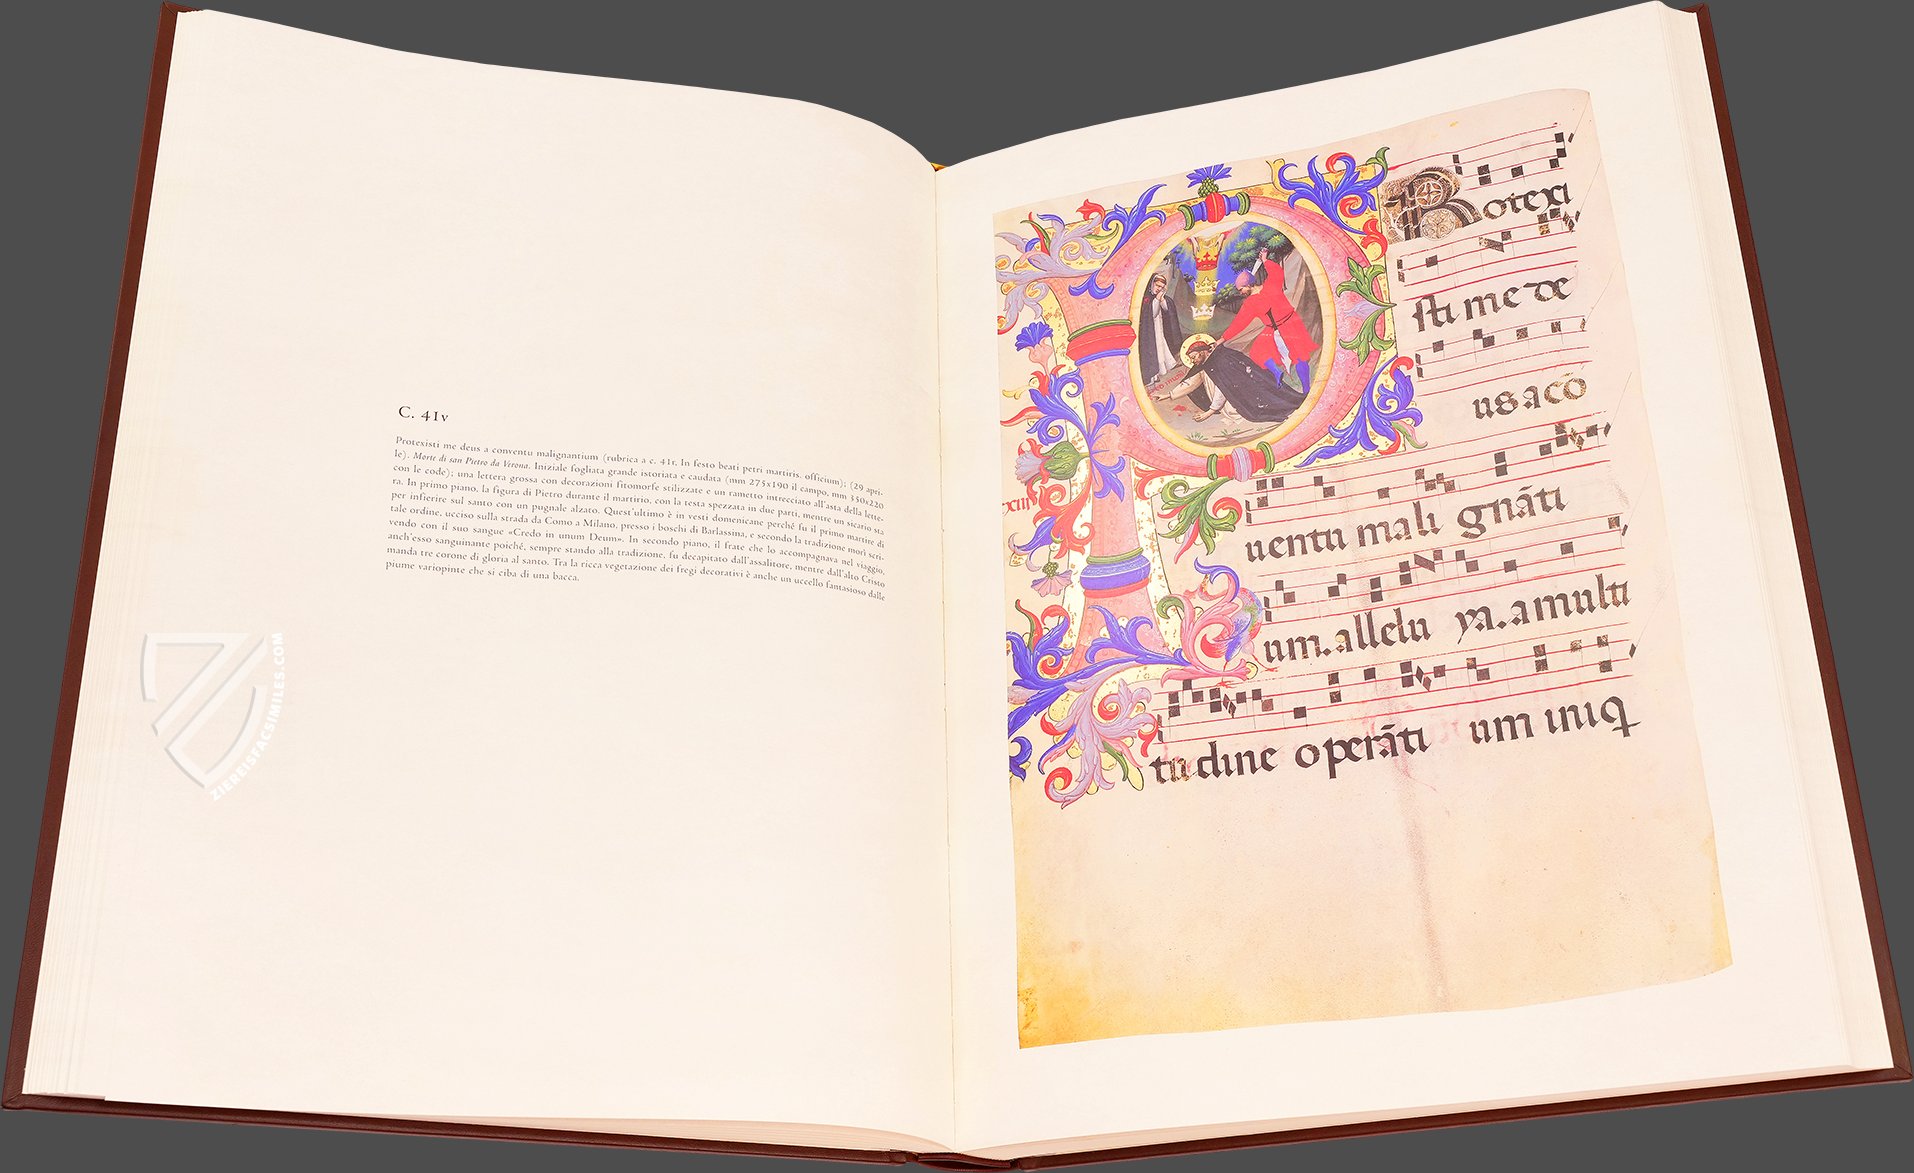 C. 41v
Protexisti me deus a conventu malignantium (rubrica a c. 41r. In festo beati petri martiris. officium); (29 apri-
le). Morte di san Pietro da Verona. Iniziale fogliata grande istoriata e caudata (mm 275x190 il campo, mm 350x220
con le code); una lettera grossa con decorazioni fitomorfe stilizzate e un rametto intrecciato all'asta della lette-
ra. In primo piano, la figura di Pietro durante il martirio, con la testa spezzata in due parti, mentre un sicario sta
per infierire sul santo con un pugnale alzato. Quest'ultimo è in vesti domenicane perché fu il primo martire di
tale ordine, ucciso sulla strada da Como a Milano, presso i boschi di Barlassina, e secondo la tradizione morì scri-
vendo con il suo sangue «Credo in unum Deum». In secondo piano, il frate che lo accompagnava nel viaggio,
anch'esso sanguinante poiché, sempre stando alla tradizione, fu decapitato dall'assalitore, mentre dall'alto Cristo
manda tre corone di gloria al santo. Tra la ricca vegetazione dei fregi decorativi è anche un uccello fantasioso dalle
piume variopinte che si ciba di una bacca.
ZIEREISFACSIMILES.COM
P Rotexi
sti me de
us a cō
uentu mali gnāti
um. allelu ya. a multi
tudine operāti um iniq